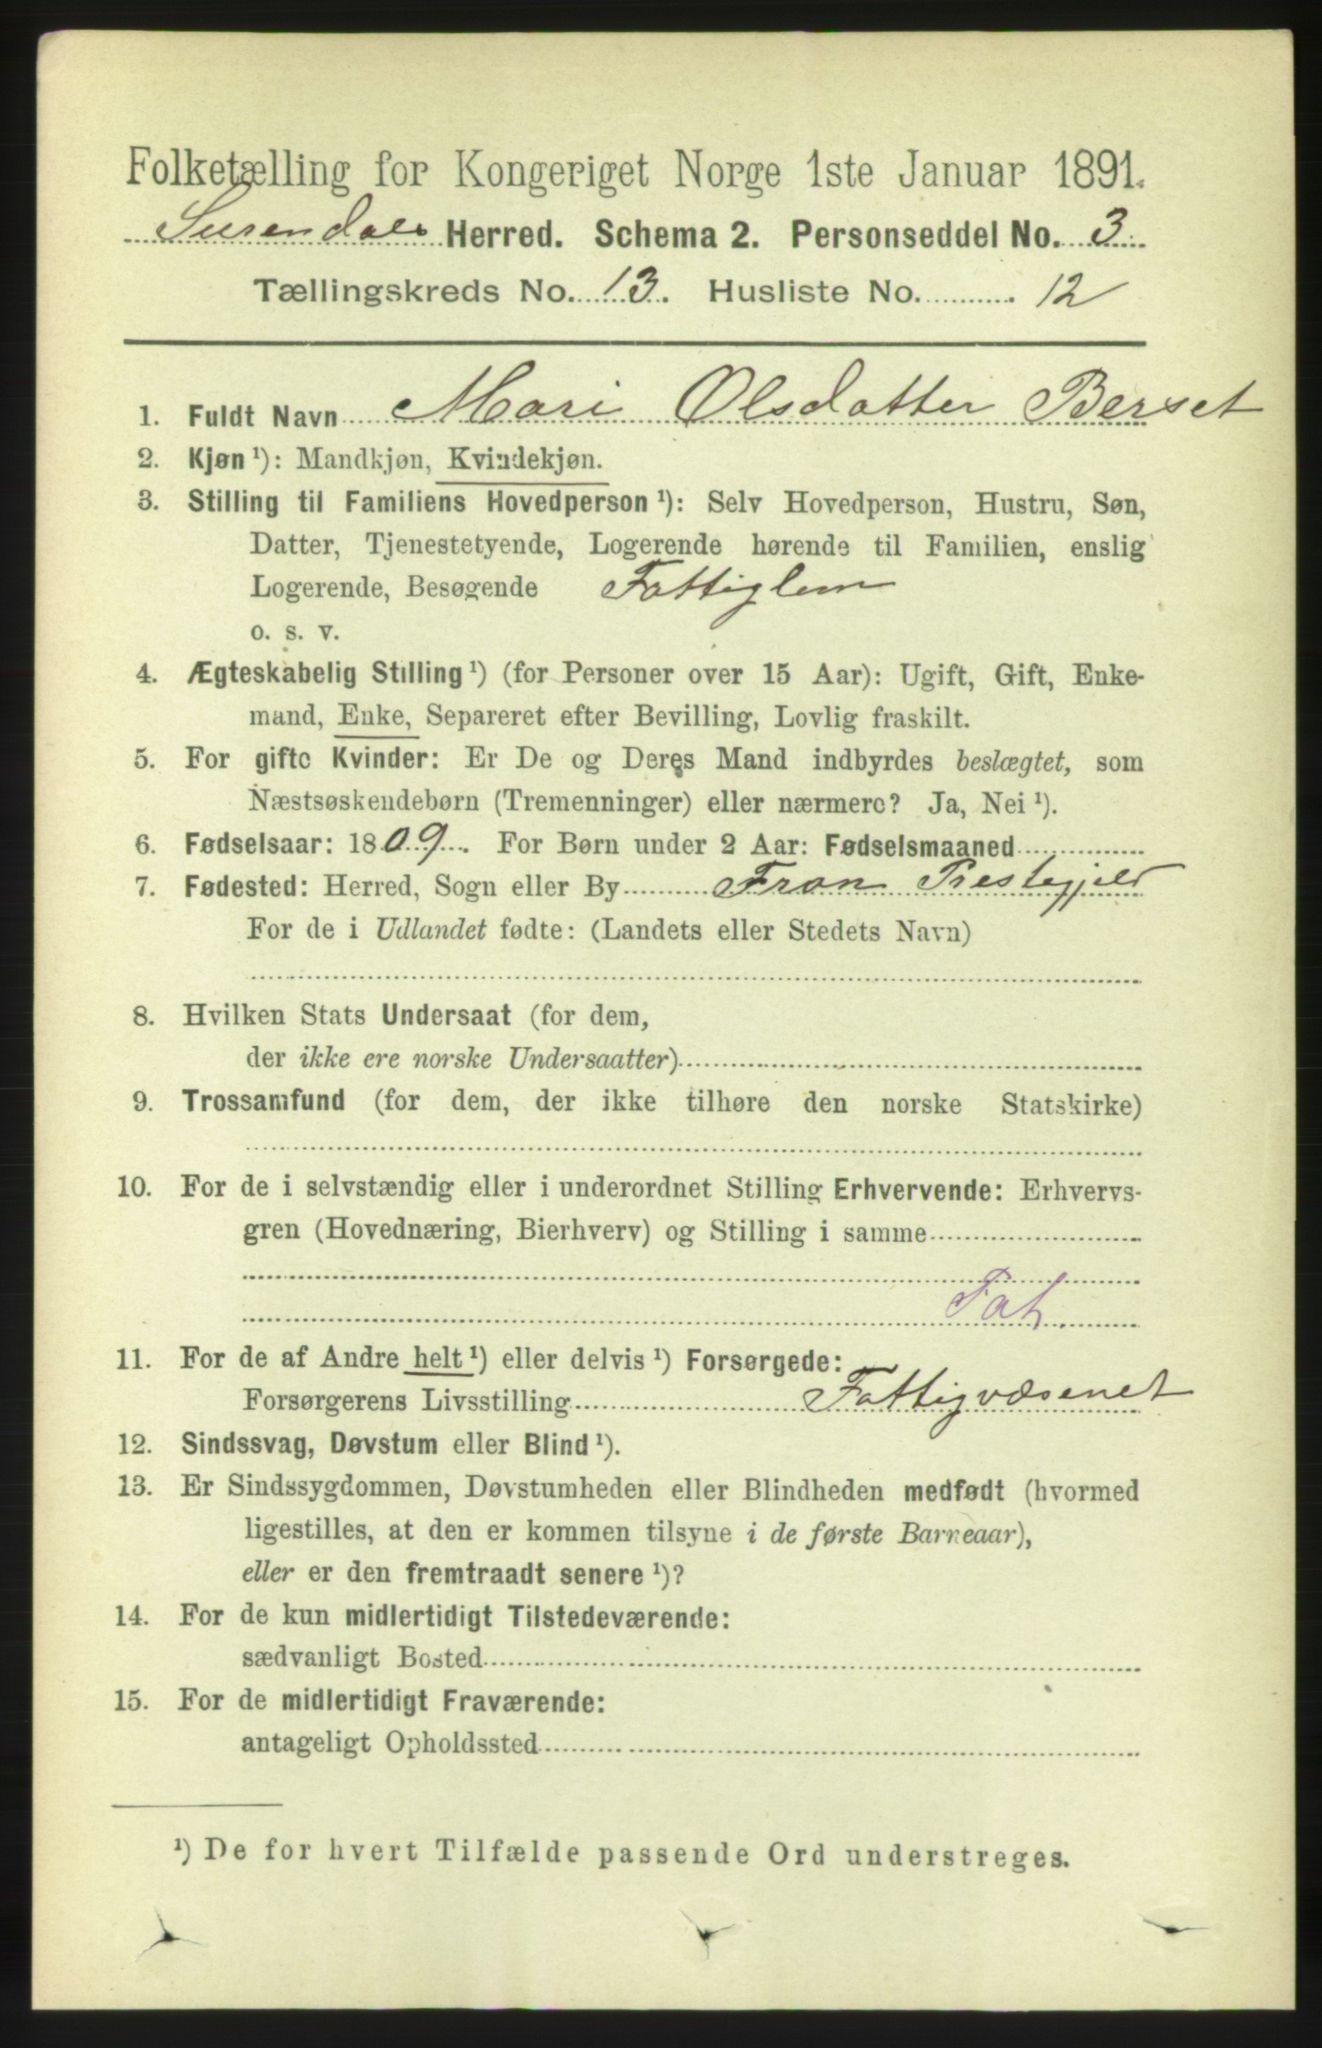 Folketælling for Kongeriget Norge 1ste Januar 1891.
Surendals Herred. Schema 2. Personseddel No. 3
Tællingskreds No. 13. Husliste No. 12
1. Fuldt Navn Mari Olsdatter Berset
2. Kjøn ¹): Mandkjøn, Kvindekjøn.
3. Stilling til Familiens Hovedperson ¹): Selv Hovedperson, Hustru, Søn,
Datter, Tjenestetyende, Logerende hørende til Familien, enslig
Logerende, Besøgende Fattiglem
o. s. v.
4. Ægteskabelig Stilling ¹) (for Personer over 15 Aar): Ugift, Gift, Enke-
mand, Enke, Separeret efter Bevilling, Lovlig fraskilt.
5. For gifte Kvinder: Er De og Deres Mand indbyrdes beslægtet, som
Næstsøskendebørn (Tremenninger) eller nærmere? Ja, Nei ¹).
6. Fødselsaar: 1809. For Børn under 2 Aar: Fødselsmaaned
7. Fødested: Herred, Sogn eller By Fron Prestegjeld
For de i Udlandet fødte: (Landets eller Stedets Navn)
8. Hvilken Stats Undersaat (for dem,
der ikke ere norske Undersaatter)
9. Trossamfund (for dem, der ikke tilhøre den norske Statskirke)
10. For de i selvstændig eller i underordnet Stilling Erhvervende: Erhvervs-
gren (Hovednæring, Bierhverv) og Stilling i samme
Fat.
11. For de af Andre helt ¹) eller delvis ¹) Forsørgede:
Forsørgerens Livsstilling Fattigvæsenet
12. Sindssvag, Døvstum eller Blind ¹).
13. Er Sindssygdommen, Døvstumheden eller Blindheden medfødt (hvormed
ligestilles, at den er kommen tilsyne i de første Barneaar),
eller er den fremtraadt senere ¹)?
14. For de kun midlertidigt Tilstedeværende:
sædvanligt Bosted
15. For de midlertidigt Fraværende:
antageligt Opholdssted
¹) De for hvert Tilfælde passende Ord understreges.